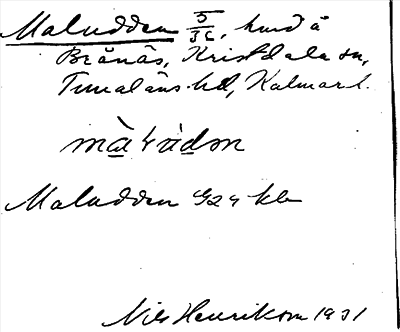 Maludden 5/36, hmd å
Brånås, Kristdala sn,
Tunaläns hd, Kalmar l.
Maludden G24 kb
Nils Henrikson 1931